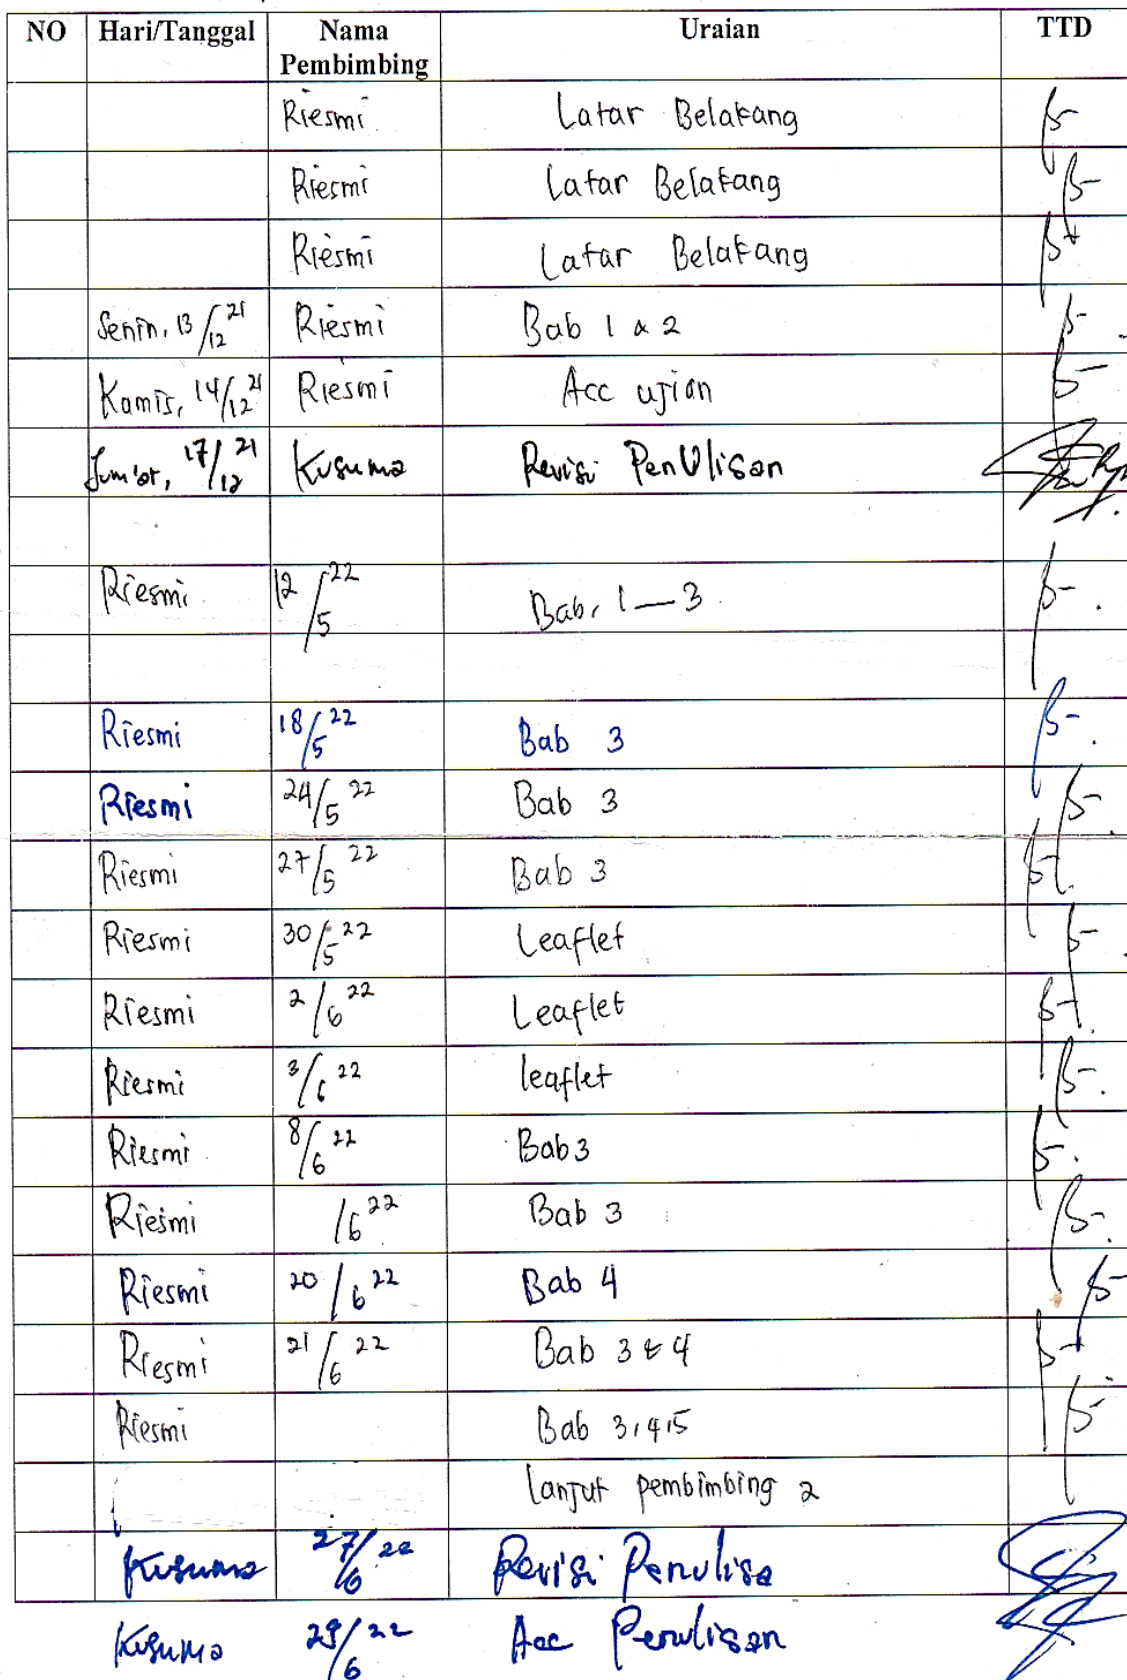 NO Hari/Tanggal Nama Pembimbing Uraian TTD
Riesmi Latar Belakang
Riesmi Latar Belakang
Riesmi Latar Belakang
Senin, 13/12 21 Riesmi Bab 1 & 2
Kamis, 14/12 21 Riesmi Acc ujian
Jum'at, 17/12 21 Kusuma Revisi Penulisan
Riesmi 12/5 22 Bab, 1 — 3
Riesmi 18/5 22 Bab 3
Riesmi 24/5 22 Bab 3
Riesmi 27/5 22 Bab 3
Riesmi 30/5 22 Leaflet
Riesmi 2/6 22 Leaflet
Riesmi 3/6 22 leaflet
Riesmi 8/6 22 Bab 3
Riesmi /6 22 Bab 3
Riesmi 20/6 22 Bab 4
Riesmi 21/6 22 Bab 3 & 4
Riesmi Bab 3,4,5
lanjut pembimbing 2
Kusuma 27/6 22 Revisi Penulisa
Kusuma 29/6 22 Acc Penulisan